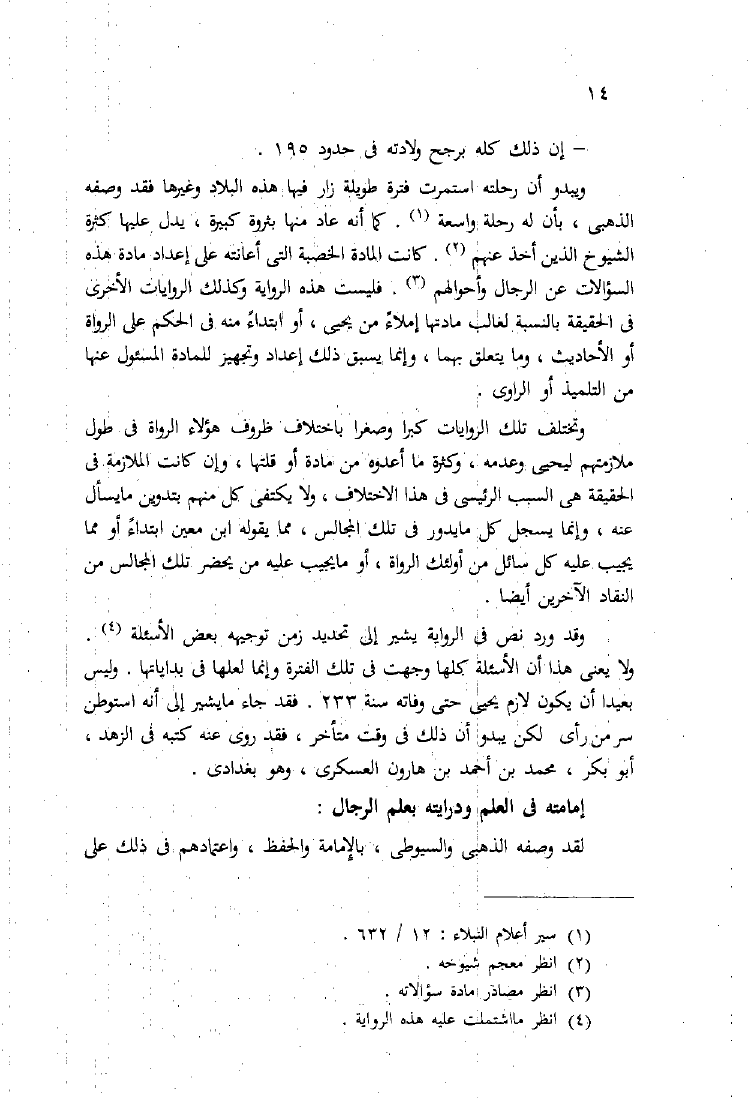 ١٤
– إن ذلك كله يرجح ولادته فى حدود ١٩٥ .
ويبدو أن رحلته استمرت فترة طويلة زار فيها هذه البلاد وغيرها فقد وصفه
الذهبى ، بأن له رحلة واسعة (١) . كما أنه عاد منها بثروة كبيرة ، يدل عليها كثرة
الشيوخ الذين أخذ عنهم (٢) . كانت المادة الخصبة التى أعانته على إعداد مادة هذه
السؤالات عن الرجال وأحوالهم (٣) . فليست هذه الرواية وكذلك الروايات الأخرى
فى الحقيقة بالنسبة لغالب مادتها إملاءً من يحيى ، أو ابتداءً منه فى الحكم على الرواة
أو الأحاديث ، وما يتعلق بهما ، وإنما يسبق ذلك إعداد وتجهيز للمادة المسئول عنها
من التلميذ أو الراوى .
وتختلف تلك الروايات كبرا وصغرا باختلاف ظروف هؤلاء الرواة فى طول
ملازمتهم ليحيى وعدمه ، وكثرة ما أعدوه من مادة أو قلتها ، وإن كانت الملازمة فى
الحقيقة هى السبب الرئيسى فى هذا الاختلاف ، ولا يكتفى كل منهم بتدوين مايسأل
عنه ، وإنما يسجل كل مايدور فى تلك المجالس ، مما يقوله ابن معين ابتداءً أو مما
يجيب عليه كل سائل من أولئك الرواة ، أو مايجيب عليه من يحضر تلك المجالس من
النقاد الآخرين أيضا .
وقد ورد نص فى الرواية يشير إلى تحديد زمن توجيهه بعض الأسئلة (٤) .
ولا يعنى هذا أن الأسئلة كلها وجهت فى تلك الفترة وإنما لعلها فى بداياتها . وليس
بعيدا أن يكون لازم يحيى حتى وفاته سنة ٢٣٣ . فقد جاء مايشير إلى أنه استوطن
سر من رأى لكن يبدو أن ذلك فى وقت متأخر ، فقد روى عنه كتبه فى الزهد ،
أبو بكر ، محمد بن أحمد بن هارون العسكرى ، وهو بغدادى .
إمامته فى العلم ودرايته بعلم الرجال :
لقد وصفه الذهبى والسيوطى ، بالإمامة والحفظ ، واعتمادهم فى ذلك على
(١) سير أعلام النبلاء : ١٢ / ٦٣٢ .
(٢) انظر معجم شيوخه .
(٣) انظر مصادر مادة سؤالاته .
(٤) انظر مااشتملت عليه هذه الرواية .